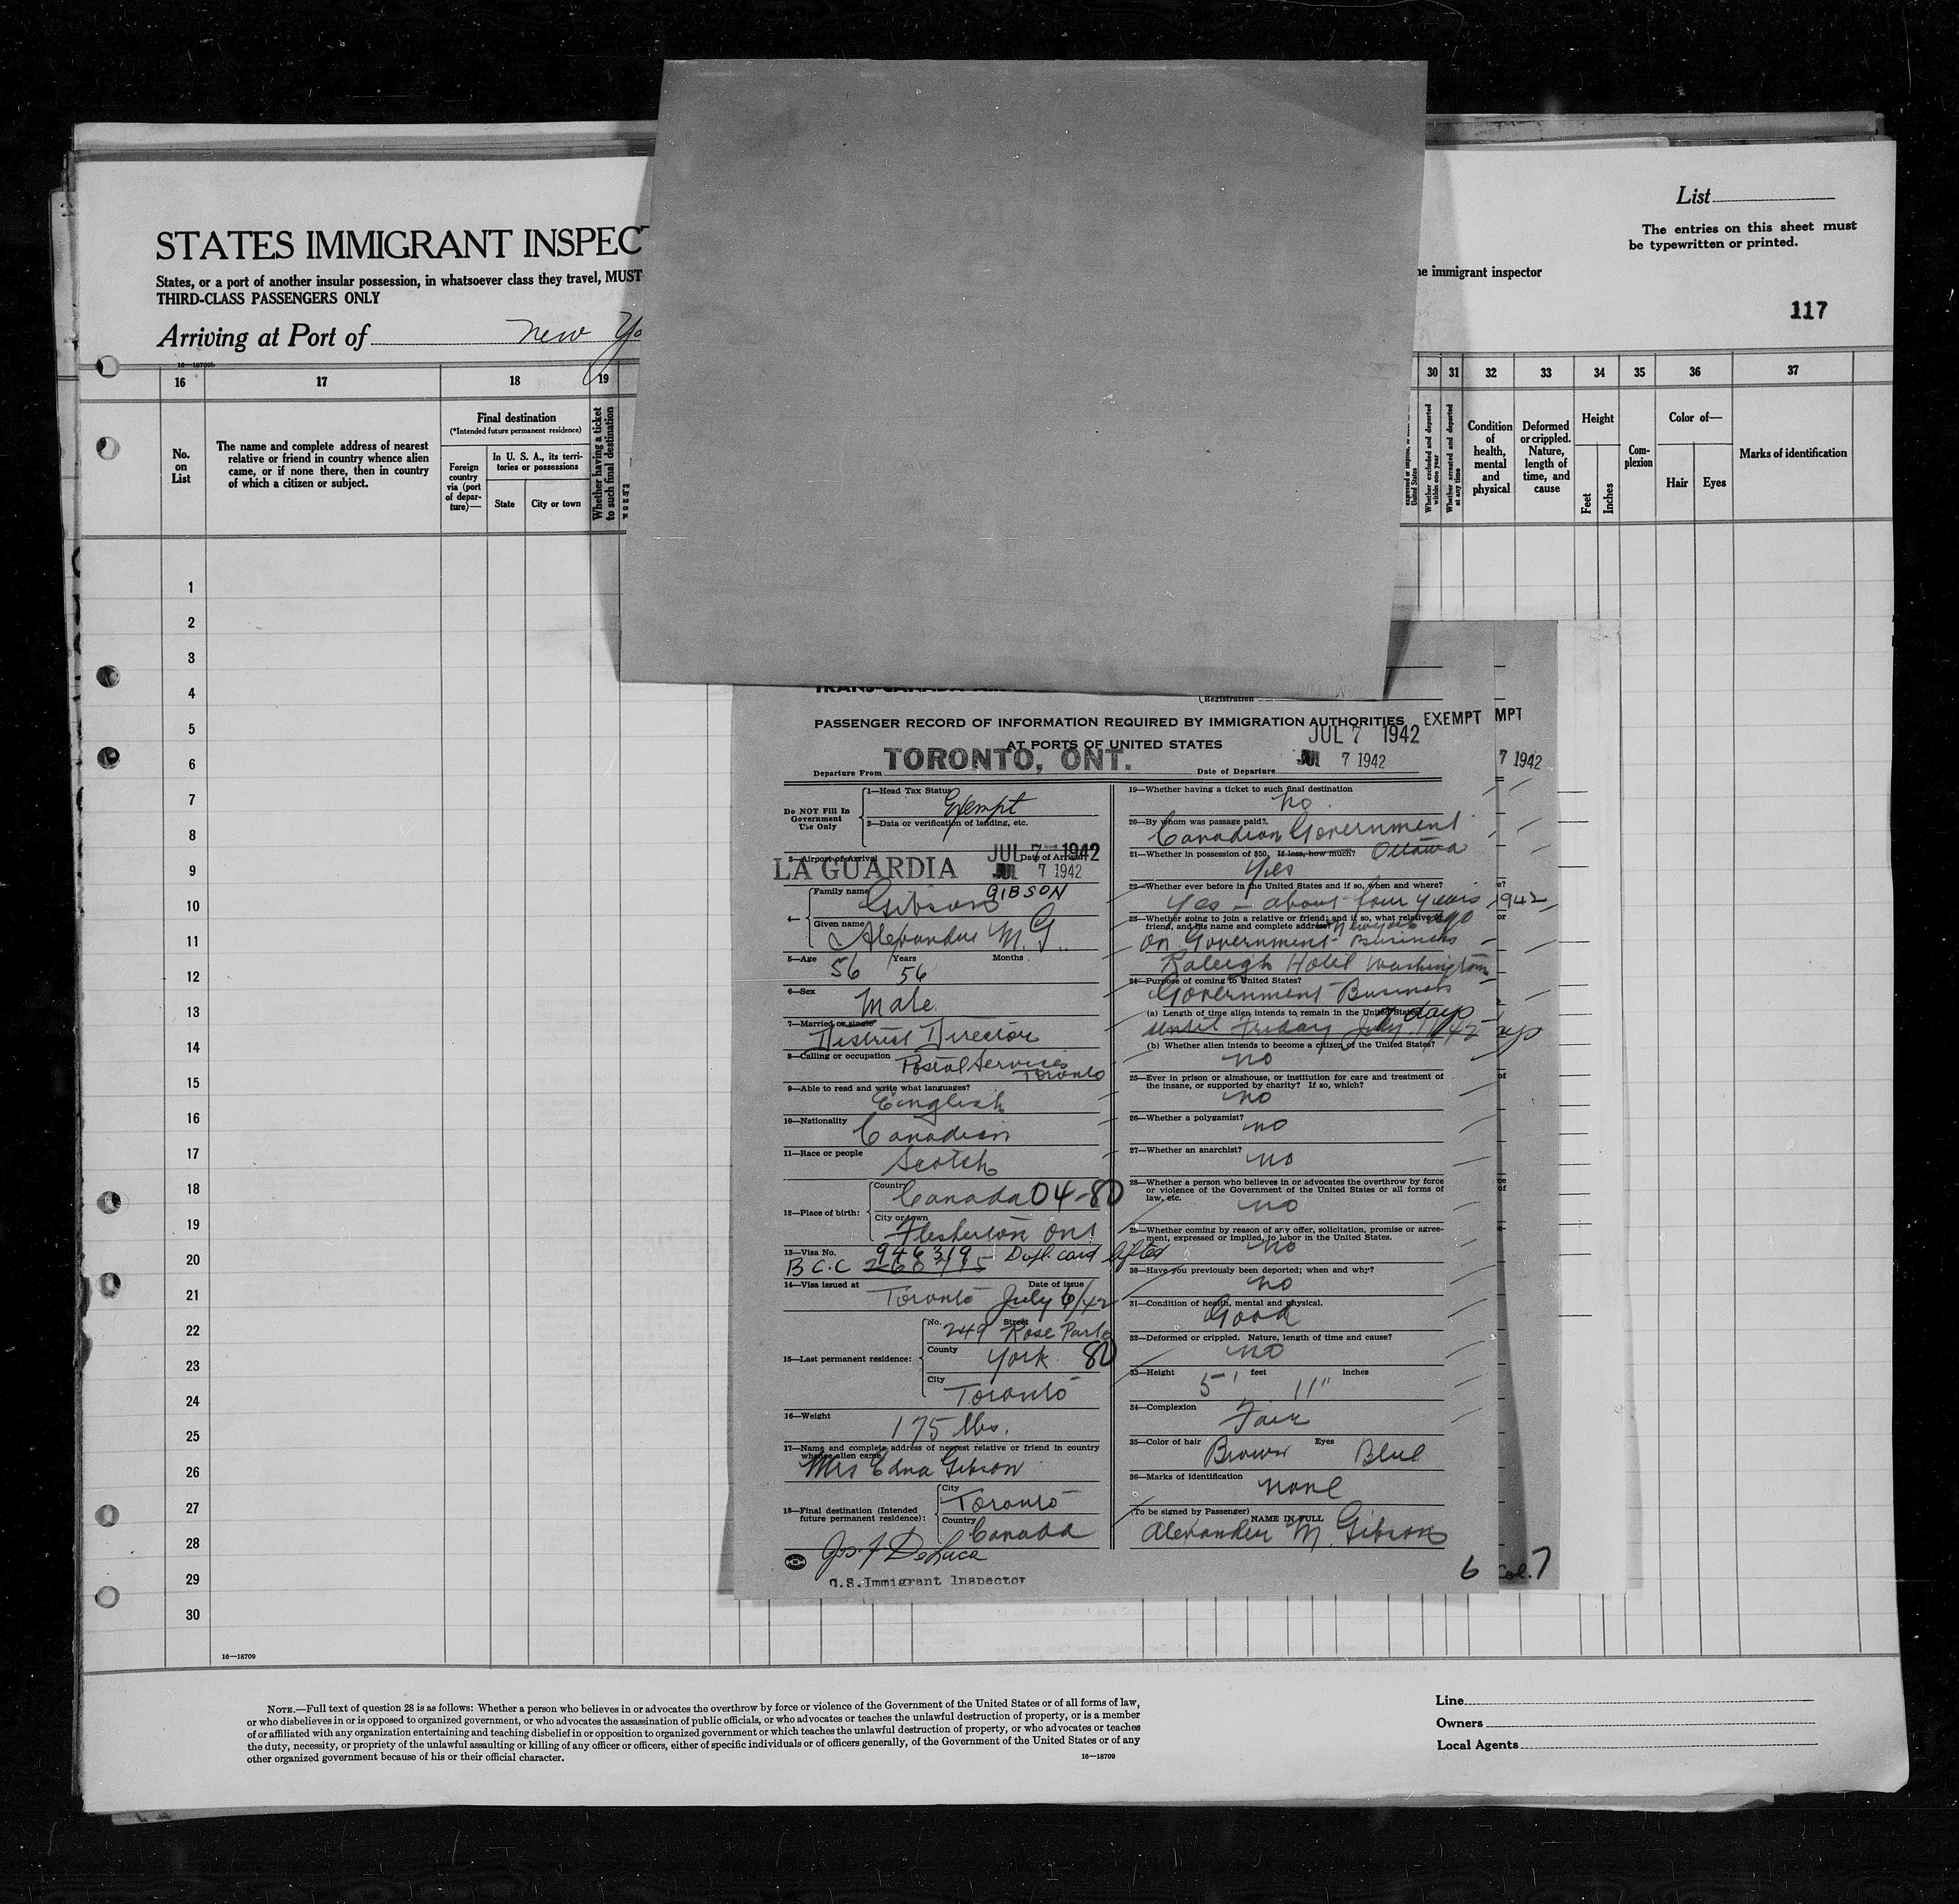 List
The entries on this sheet must
be typewritten or printed.
STATES IMMIGRANT INSPEC
States, or a port of another insular possession, in whatsoever class they travel, MUST
THIRD-CLASS PASSENGERS ONLY
immigrant inspector
117
Arriving at Port of New Yo
16—18709b
16 17 18 19
30 31 32 33 34 35 36 37
No. on List
The name and complete address of nearest
relative or friend in country whence alien
came, or if none there, then in country
of which a citizen or subject.
Final destination
(*Intended future permanent residence)
Foreign country via (port of departure)—
In U. S. A., its territories or possessions
State
City or town
Whether having a ticket to such final destination
Whether excluded and deported within one year
Whether arrested and deported at any time
Condition of health, mental and physical
Deformed or crippled. Nature, length of time, and cause
Height
Feet
Inches
Com-
plexion
Color of—
Hair
Eyes
Marks of identification
1
2
3
4
5
6
7
8
9
10
11
12
13
14
15
16
17
18
19
20
21
22
23
24
25
26
27
28
29
30
16—18709
(Registration
PASSENGER RECORD OF INFORMATION REQUIRED BY IMMIGRATION AUTHORITIES
AT PORTS OF UNITED STATES
EXEMPT
MPT
JUL 7 1942
Departure From TORONTO, ONT.
Date of Departure JUL 7 1942
7 1942
Do NOT Fill In
Government
Use Only
1—Head Tax Status Exempt
2—Data or verification of landing, etc.
3—Airport of Arrival LA GUARDIA
Date of Arrival JUL 7 1942
JUL 7 1942
4— Family name Gibson GIBSON
Given name Alexander M. G.
5—Age 56 Years 56 Months
6—Sex Male
7—Married or single
District Director
8—Calling or occupation Postal Services
Toronto
9—Able to read and write what languages?
English
10—Nationality Canadian
11—Race or people Scotch
12—Place of birth: Country Canada 04-80
City or town Flesherton Ont
13—Visa No. 946319 Dupl. card lifted
B C.C
14—Visa issued at Toronto Date of issue July 6/42
15—Last permanent residence: No. 249 Street Rose Park
County York 80
City Toronto
16—Weight 175 lbs.
17—Name and complete address of nearest relative or friend in country
whence alien came
Mrs Edna Gibson
18—Final destination (Intended
future permanent residence): City Toronto
Country Canada
Jos. F. DeLuca
U.S. Immigrant Inspector
19—Whether having a ticket to such final destination
no.
20—By whom was passage paid?
Canadian Government
21—Whether in possession of $50, If less, how much? Ottawa
Yes
22—Whether ever before in the United States and if so, when and where?
Yes – about four years ago
1942
23—Whether going to join a relative or friend; and if so, what relative or
friend, and his name and complete address New York
on Government Business
Raleigh Hotel Washington
24—Purpose of coming to United States?
Government Business
(a) Length of time alien intends to remain in the United States 7 days
until Friday July
(b) Whether alien intends to become a citizen of the United States?
no
25—Ever in prison or almshouse, or institution for care and treatment of
the insane, or supported by charity? If so, which?
no
26—Whether a polygamist?
no
27—Whether an anarchist?
no
28—Whether a person who believes in or advocates the overthrow by force
or violence of the Government of the United States or all forms of
law, etc.
no
29—Whether coming by reason of any offer, solicitation, promise or agree-
ment, expressed or implied, to labor in the United States.
no
30—Have you previously been deported; when and why?
no
31—Condition of health, mental and physical.
Good
32—Deformed or crippled. Nature, length of time and cause?
no
33—Height 5' feet 11" inches
34—Complexion
Fair
35—Color of hair Brown Eyes Blue
36—Marks of identification
none
(To be signed by Passenger) NAME IN FULL
Alexander M. Gibson
6
Col. 7
NOTE.—Full text of question 28 is as follows: Whether a person who believes in or advocates the overthrow by force or violence of the Government of the United States or of all forms of law,
or who disbelieves in or is opposed to organized government, or who advocates the assassination of public officials, or who advocates or teaches the unlawful destruction of property, or is a member
of or affiliated with any organization entertaining and teaching disbelief in or opposition to organized government or which teaches the unlawful destruction of property, or who advocates or teaches
the duty, necessity, or propriety of the unlawful assaulting or killing of any officer or officers, either of specific individuals or of officers generally, of the Government of the United States or of any
other organized government because of his or their official character.
16—18709
Line
Owners
Local Agents